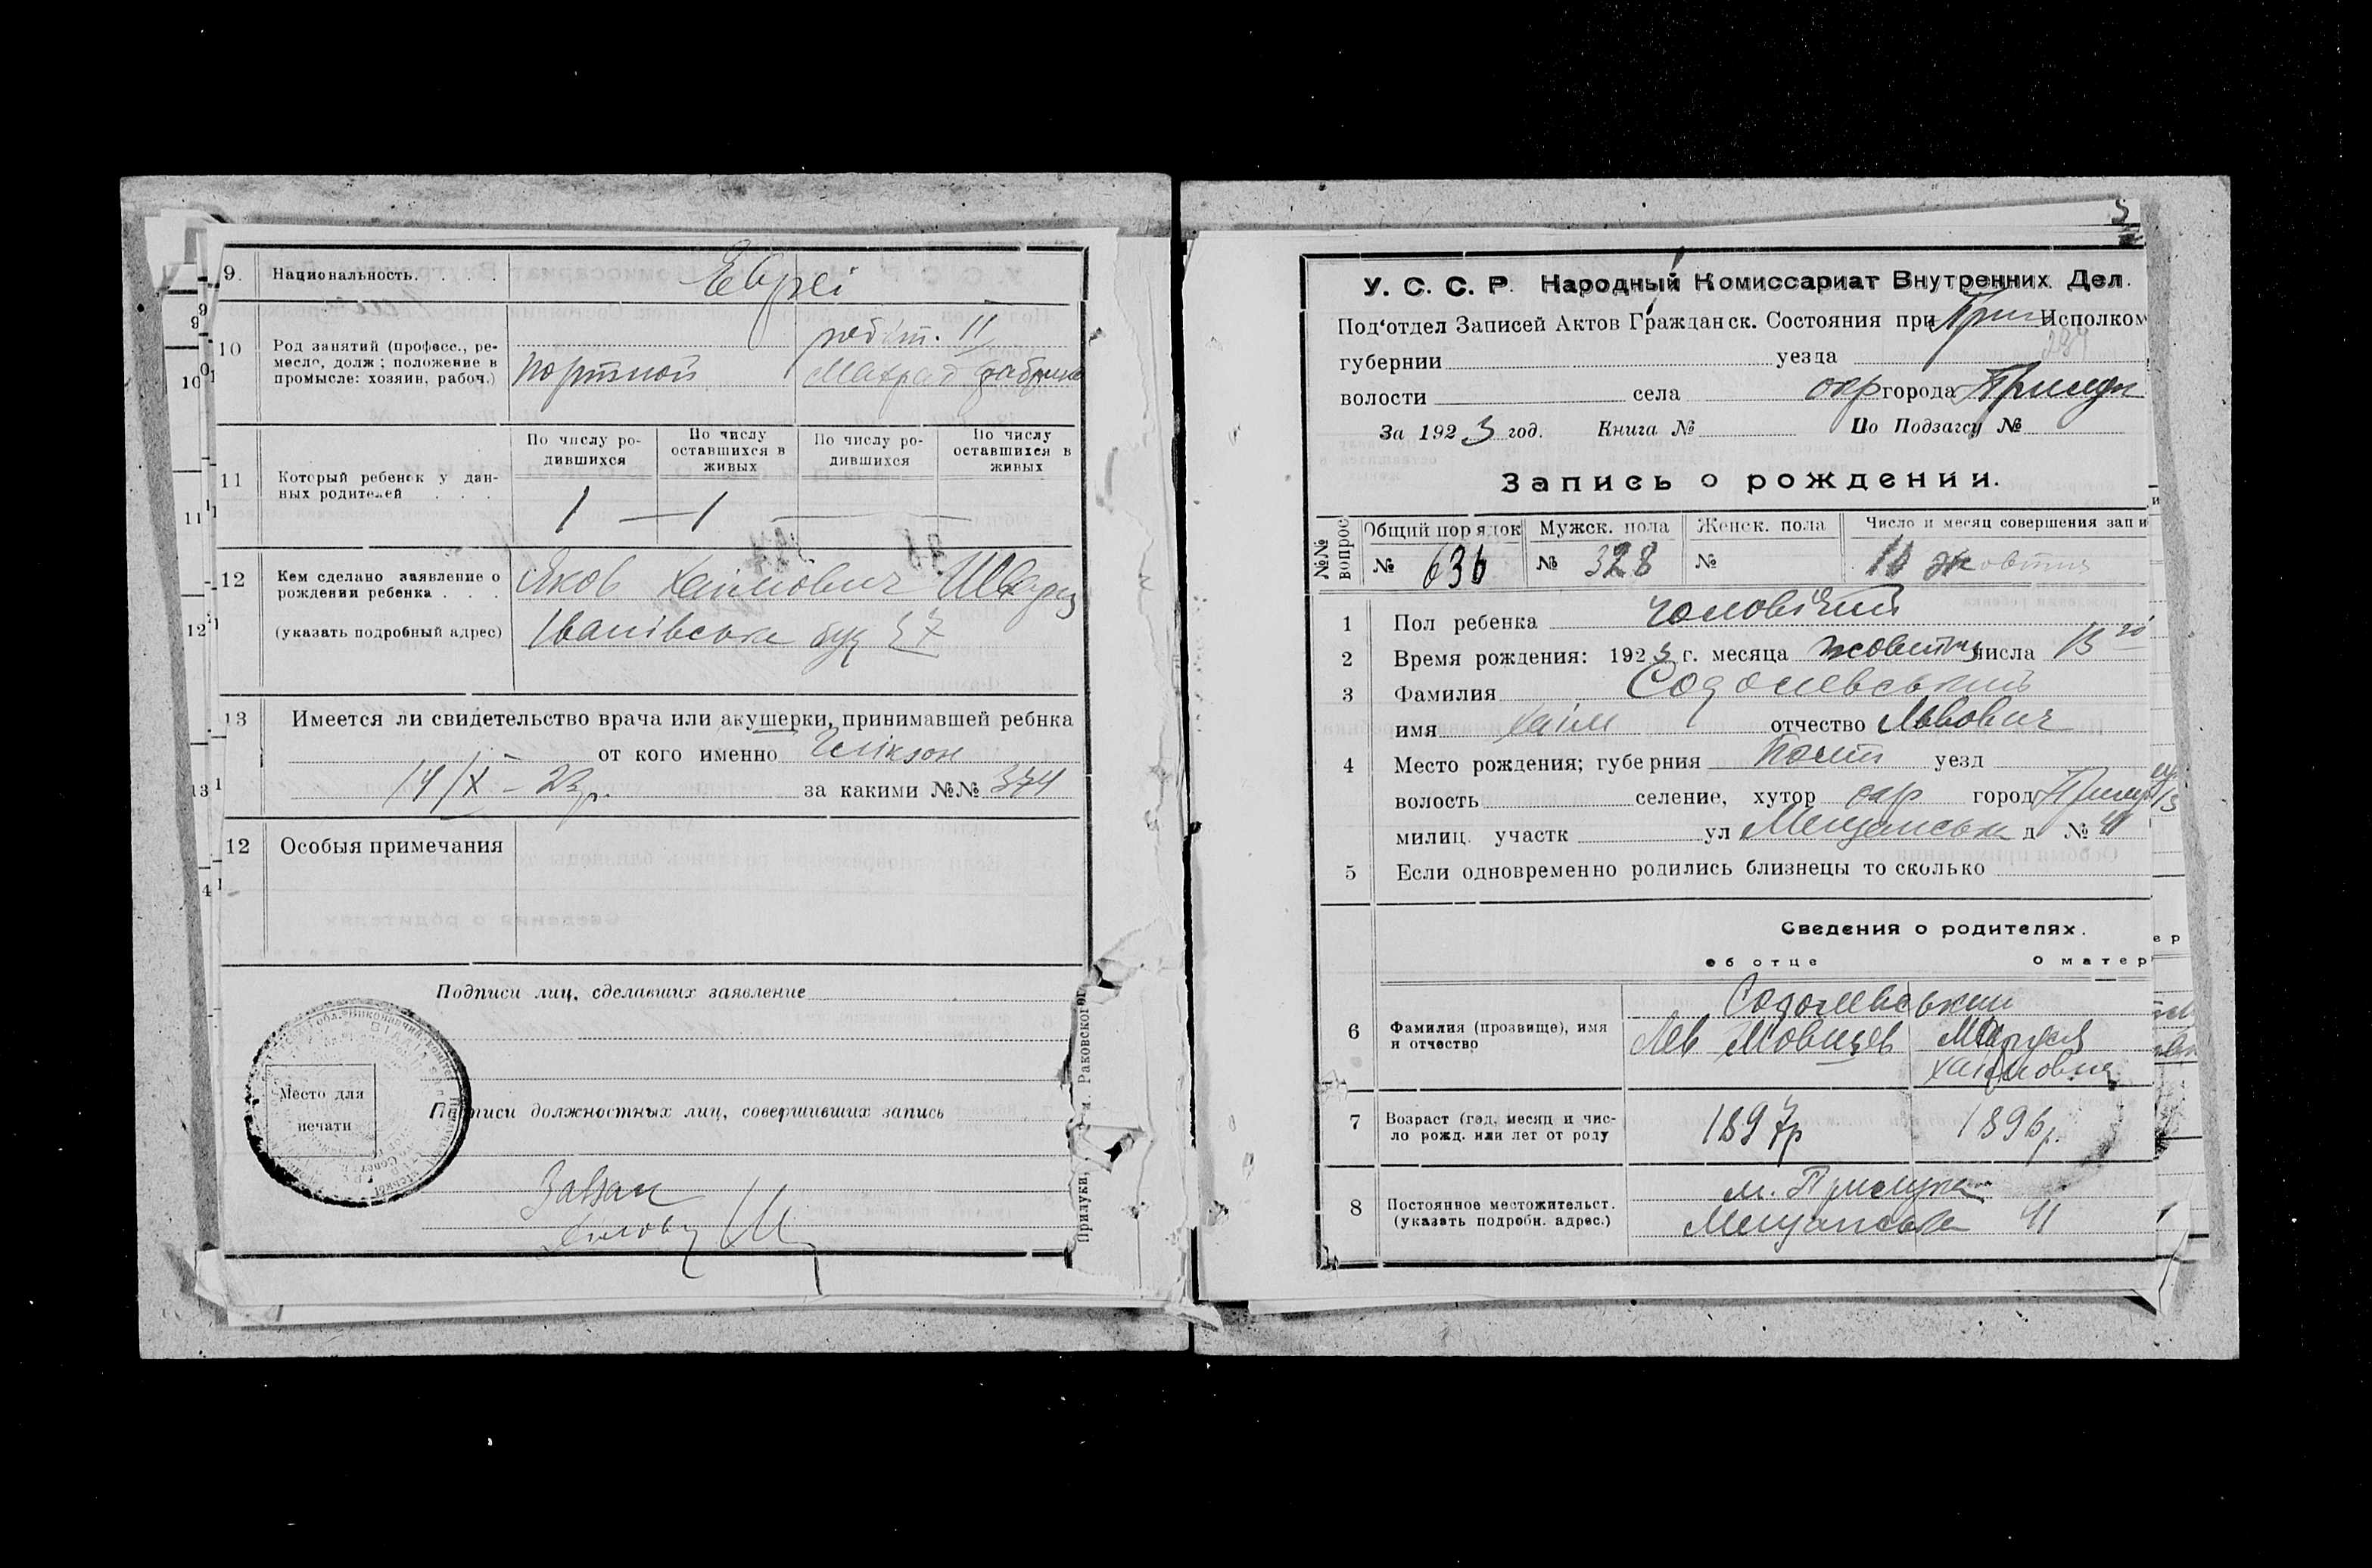 9. Национальность. . . . . Евреї
10 Род занятий (професс., ре-
месло, долж; положение в
промысле: хозяин, рабоч.)
портной
робіт. II
Махрад фабрики
11 Который ребенок у дан-
ных родителей . . .
По числу ро-
дившихся
По числу
оставшихся в
живых
По числу ро-
дившихся
По числу
оставшихся в
живых
1 — 1 — —
12 Кем сделано заявление о
рождении ребенка . . .
(указать подробный адрес)
Яков Хаїмович Шварц
Іванівська буд 37
13 Имеется ли свидетельство врача или акушерки, принимавшей ребнка
от кого именно
14/X – 23 р. за какими №№ 374
12 Особыя примечания
Подписи лиц, сделавших заявление
Место для
печати
Подписи должностных лиц, совершивших запись
Завзаг
Прилуки,
Раковского
У. С. С. Р. Народный Комиссариат Внутренних Дел.
Под'отдел Записей Актов Гражданск. Состояния при Прил Исполком
губернии уезда
волости села окр города Прилуки
За 1923 год. Книга № По Подзагсу №
Запись о рождении.
№№
вопрос
Общий порядок
№ 636
Мужск. пола
№ 328
Женск. пола
№
Число и месяц совершения запи
жовтня
1 Пол ребенка чоловічий
2 Время рождения: 1923 г. месяца жовтня числа 13
3 Фамилия Содолевський
имя Хаїм отчество Львович
4 Место рождения; губерния Полт уезд
волость селение, хутор окр город Прилук
милиц. участк ул Мещанська д № 41
5 Если одновременно родились близнецы то сколько
Сведения о родителях.
об отце О матер
6 Фамилия (прозвище), имя
и отчество
Содолевський
Лев Мовшев Маруся
Хаімовна
7 Возраст (год, месяц и чис-
ло рожд. или лет от роду
1897р 1896р.
8 Постоянное местожительст.
(указать подробн. адрес.)
м. Прилука
Мещанська 41